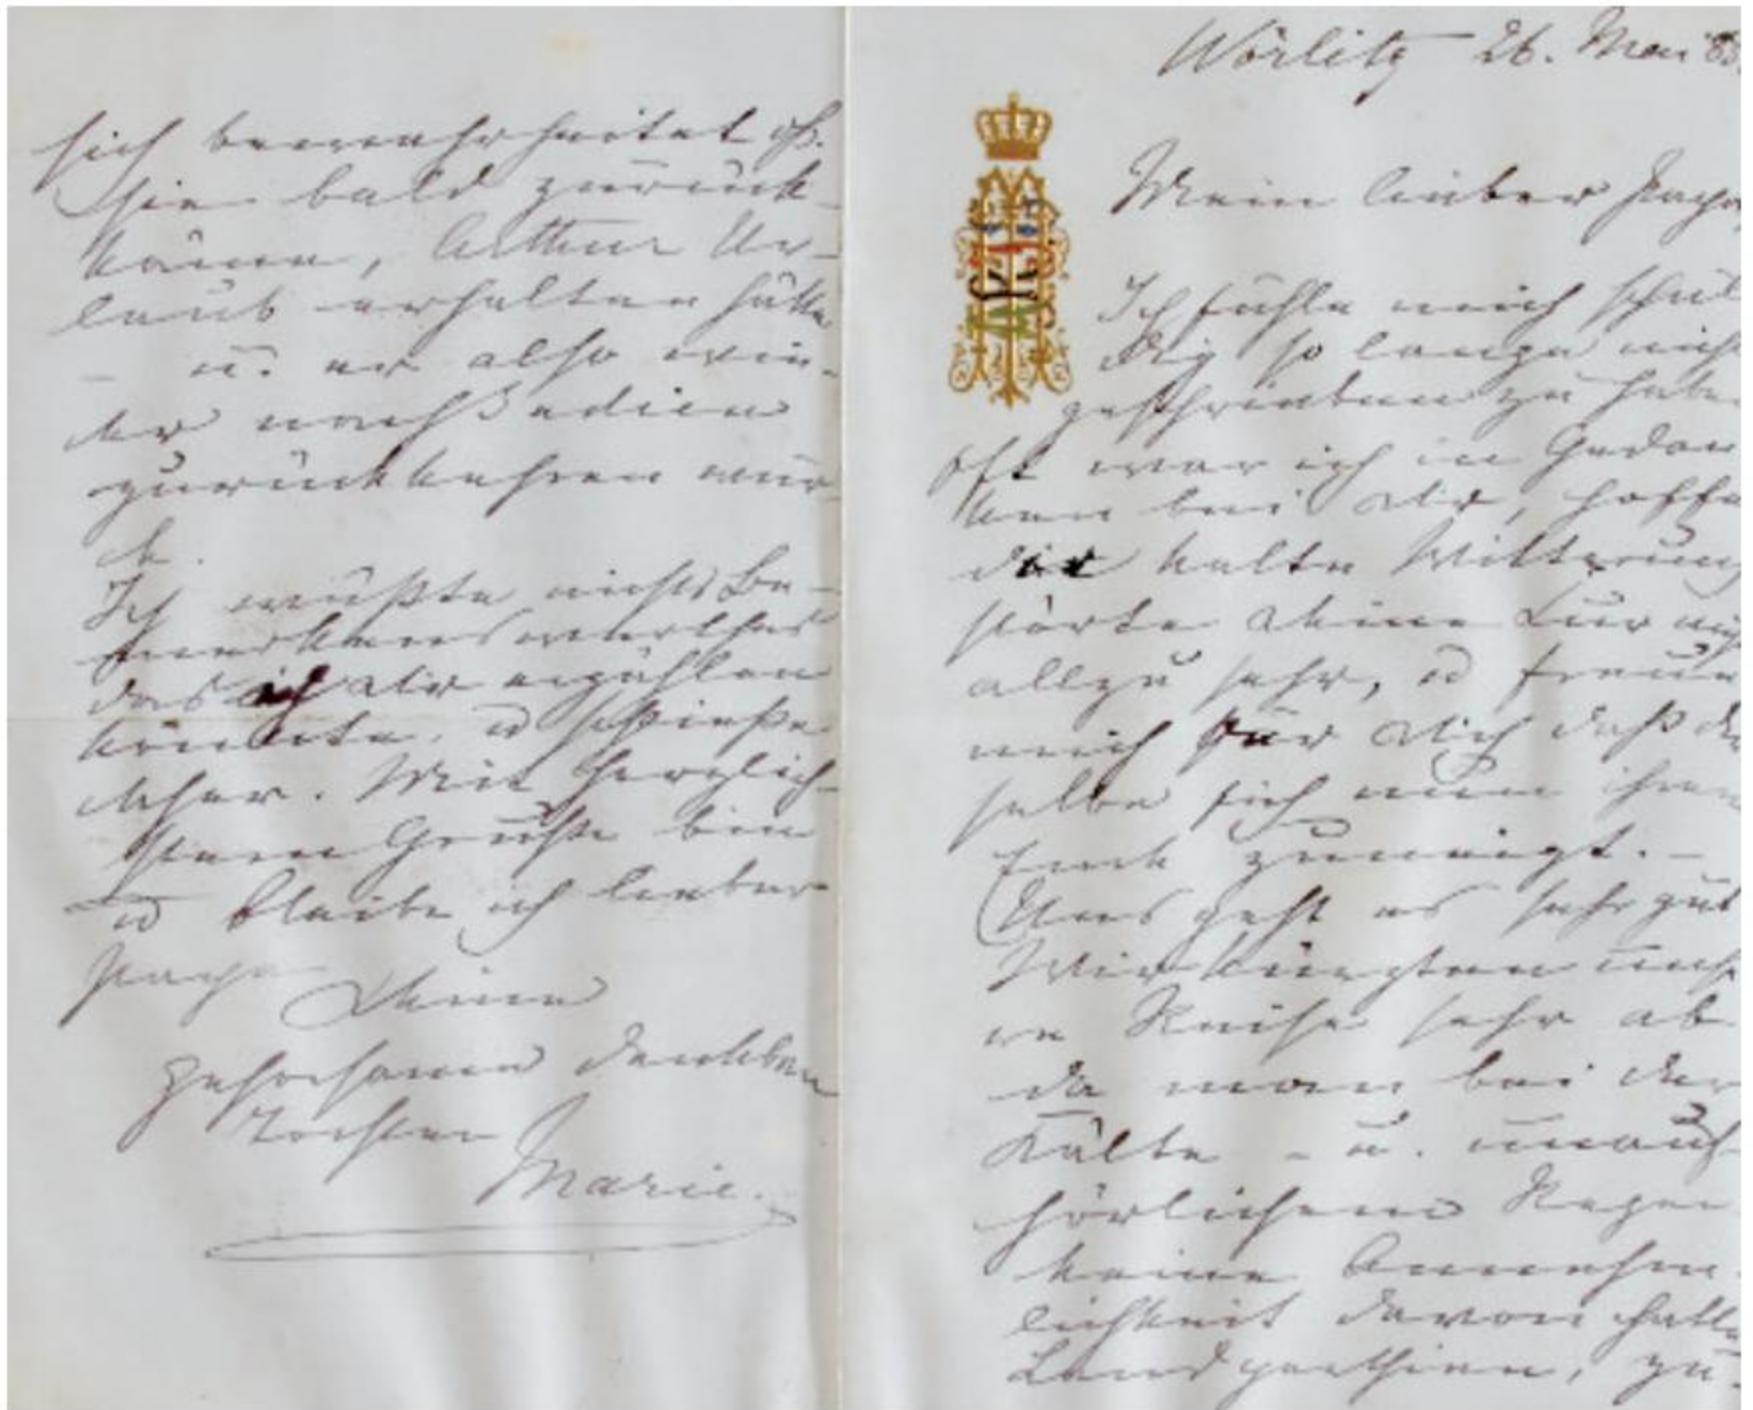 sich bewahrheitet ob
Sie bald zurück-
käme, Arthur Ur-
laub erhalten hätte
- u. er also wie-
der nach
zurückkehren wür
de.
Ich wüßte nichts Be-
merkenswerthes
das ich Dir erzählen
könnte, u schließe
daher. Mit herzlich-
stem Gruße bin
u bleibe ich lieber
Papa
Deine
gehorsame dankbare
Tochter
Marie.
Wörlitz 26. Mai
Mein lieber Papa
Ich fühle mich schul
dig so lange nicht
geschrieben zu haben
Oft war ich in Gedan
ken bei Dir, hoffe
die kalte Witterung
störte Deine Kur nicht
allzu sehr, u freue
mich für Dich daß die
selbe sich nun ihrem
Ende zuneigt. -
Uns geht es sehr gut
Wir kürzten unse
re Reise sehr ab
da man bei der
Kälte - u. unauf
hörlichem Regen
keine Annehm-
lichkeit davon hatte
Landparthien, zu-